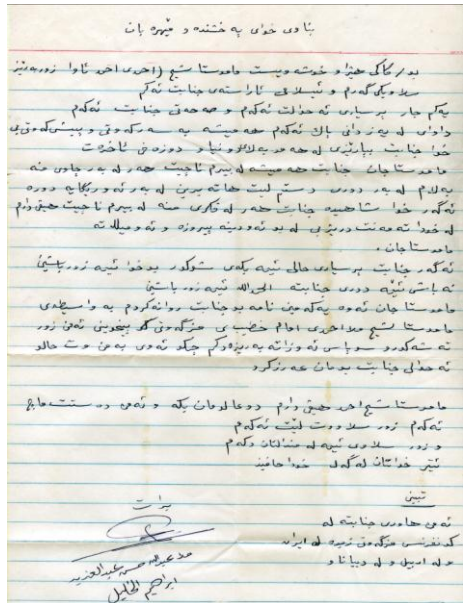 بناوی خوای بەخشندە و میهرەبان
بۆ/ کاکی هێژا و خوشە ویست مامۆستا شێخ (احمدی اخی ئاوا زۆر بەڕێز
سلاویکی گەرم و ئیسلامی ئاراستەی جنابت ئەکەم
یەکم جار پرسیاری ئەحوالت ئەکەم و صحەتی جنابت ئەکەم
داوای لە یەزدانی بالا ئەکەم هەمیشە بە سەرکەوتی و پێشکەوتی بی
خوا جنابت بپارێزێ لە هەر بەلای دنیا و دوزەخی ئاخرەت
مامۆستا جان جنابت هەمیشە لە بیرم ناچیت هەر لە بەر چاوی منە
بەلام لە بەر دووری دستم لێت هاتە برین لە بەر ئەو رێگایە دوورە
ئەگەر خوا شاهیدە جنابت هەر لە فکری منە لە بیرم ناچیت حیق دارم
لە خوا تەمەنت درێژ بی لە بۆ ئەو دینە پیرۆزە و ئەو میللەتە
مامۆستا جان .
ئەگەر جنابت پرسیاری حالی ئیمە یکەی شوکور بۆ خوا ئیمە زۆر باشین
نە باشی ئیمە دووری جنابتە الحمدللە ئیمە زۆر باشین
مامۆستا جان ئەوە یەکەمین نامە بۆ جنابت روانە کردم بە واسیطەی
مامۆستا شێخ ملا احمدی امام خطیبی مزگەوتی
تەشەکور و سوپاسی ئەو زاتە بەرێزە دکم چکو ئەوی بە من وت حالو
ئەحوالی جنابت بۆمان عەرز کرد
مامۆستا شێخ احمد حیق دارم دوعا لەمان بکە و ئەمن دەستت ماچ
ئەکەم زۆر سلاوت لێت ئەکەم
و زۆر سلاوی ئیمە لە منداڵتان دکەم
ئیتر خواتان لەگەل خوا حافیز
تبینی
ئەمن هاوری جنابتە لە
کۆنفرنسی لە ایران
و لە اربیل و لە
برات
ملا عبداللە حسن عبدالعزیز
ابراهیم الخلیل